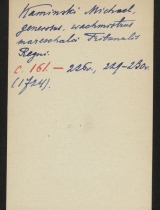 Kaminski Michael,
generosus, wachmistrus
mareschalci Tribunalis
Regni.
c. 161. — 226v, 229-230v.
(1724).